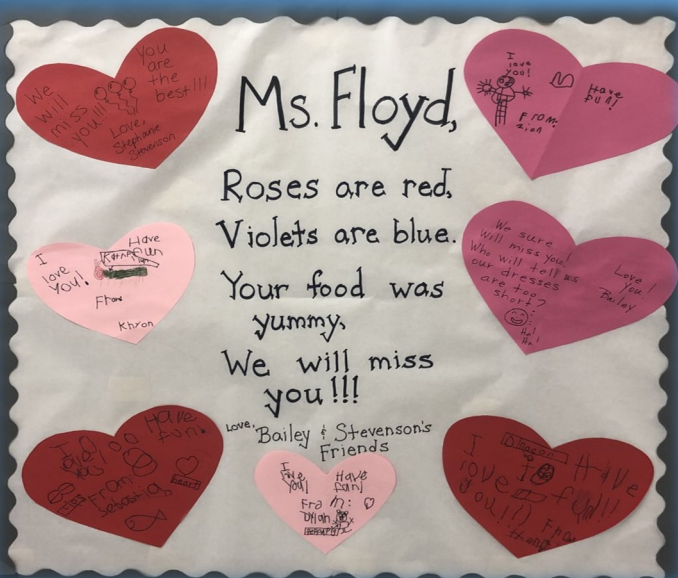 We
will
miss
you!!!
You
are
the
best!!!
Love,
Stephanie
Stevenson
Ms. Floyd,
Roses are red,
Violets are blue.
Your food was
yummy,
We will miss
you!!!
Love,
Bailey & Stevenson's
Friends
I
love
you!
Have
fun!
From
zion
I
love
You!
Have
fun
From
Khyon
We sure
will miss you!
Who will tell us
our dresses
are too
short?
Ha!
Ha!
Love
you!
Bailey
I
love
you
Have
fun!
From
Sebastia
I
love
you!
Have
fun!
From:
Dylan
I
love
you!!)
Have
fun!!
From